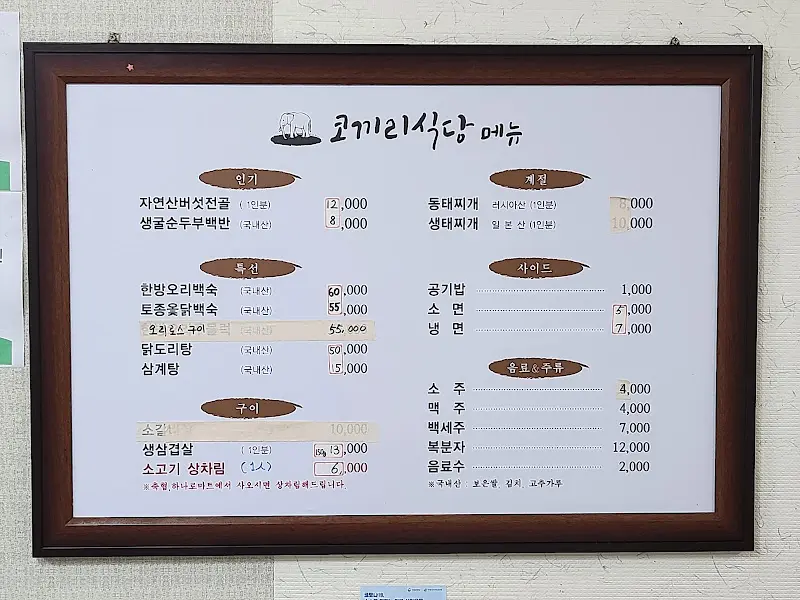 코끼리식당 메뉴
인기
자연산버섯전골 (1인분) 12,000
생굴순두부백반 (국내산) 8,000
특선
한방오리백숙 (국내산) 60,000
토종옻닭백숙 (국내산) 55,000
오리로스구이 55,000
닭도리탕 (국내산) 50,000
삼계탕 (국내산) 15,000
구이
소갈 10,000
생삼겹살 (1인분) 150g 13,000
소고기 상차림 (1人) 6,000
※축협,하나로마트에서 사오시면 상차림해드립니다.
계절
동태찌개 러시아산 (1인분) 8,000
생태찌개 일본산 (1인분) 10,000
사이드
공기밥 1,000
소면 5,000
냉면 7,000
음료&주류
소주 4,000
맥주 4,000
백세주 7,000
복분자 12,000
음료수 2,000
※국내산 : 보은쌀, 김치, 고추가루